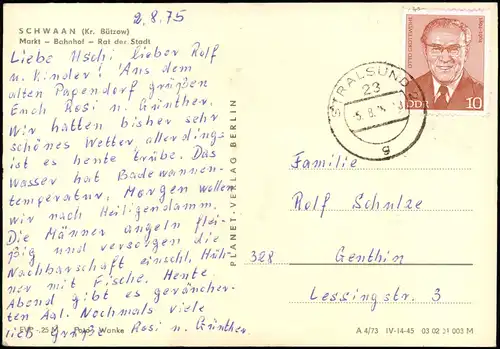 2.8.75
SCHWAAN (Kr. Bützow)
Markt – Bahnhof – Rat der Stadt
Liebe Uschi, lieber Rolf
u. Kinder! Aus dem
alten Papendorf grüßen
Euch Rosi u. Günther.
Wir hatten bisher sehr
schönes Wetter, allerdings
ist es heute trübe. Das
Wasser hat Badewannen-
temperatur. Morgen wollen
wir nach Heiligendamm.
Die Männer angeln flei-
ßig und versorgen die
Nachbarschaft einschl. Hüh-
ner mit Fische. Heute
Abend gibt es geräucher-
ten Aal. Nochmals viele
lieb Grüße Rosi u. Günther.
EVP -.25 M Foto: Wanke
PLANET-VERLAG BERLIN
STRALSUND
23
5.8.75
g
OTTO GROTEWOHL
1894-1964
DDR 10
Familie
Rolf Schulze
328 Genthin
Lessingstr. 3
A 4/73 IV-14-45 03 02 21 003 M